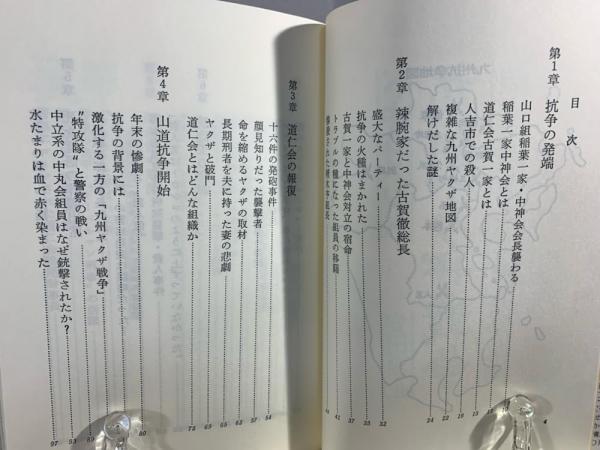 目次
第1章 抗争の発端
山口組稲葉一家・中神会会長襲わる 4
稲葉一家中神会とは
道仁会古賀一家とは
人吉市での殺人 19
複雑な九州ヤクザ地図 22
解けだした謎 24
第2章 辣腕家だった古賀徹総長
盛大なパーティー 32
抗争の火種はまかれた 35
古賀一家と中神会対立の宿命 37
トラブルの種となった組員の移籍 41
44
第3章 道仁会の報復
十六件の発砲事件 54
顔見知りだった襲撃者 57
命を縮めるヤクザの取材 63
長期刑者を夫に持った妻の悲劇 65
ヤクザと破門 68
道仁会とはどんな組織か 73
第4章 山道抗争開始
年末の惨劇 80
抗争の背景には
激化する一方の「九州ヤクザ戦争」 89
“特攻隊”と警察の戦い
中立系の中丸会組員はなぜ銃撃されたか?
水たまりは血で赤く染まった 97
九州抗争地図